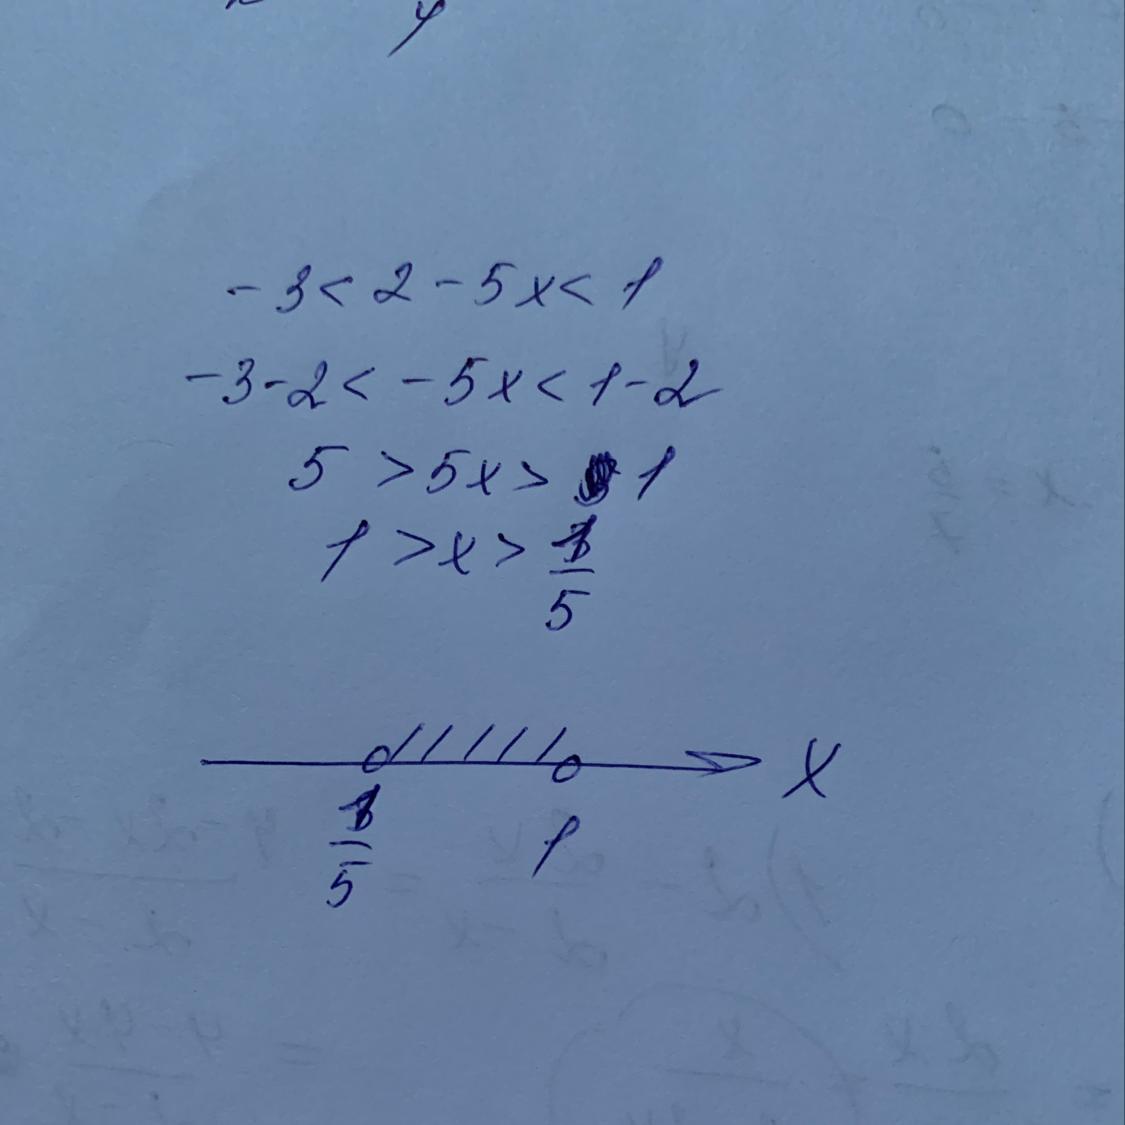 y
-3 < 2 - 5x < 1
-3 - 2 < -5x < 1 - 2
5 > 5x > 1
1 > x > 1/5
x
1/5 1